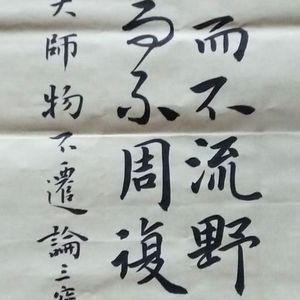 而不流野
而不周復
大師物不遷論三